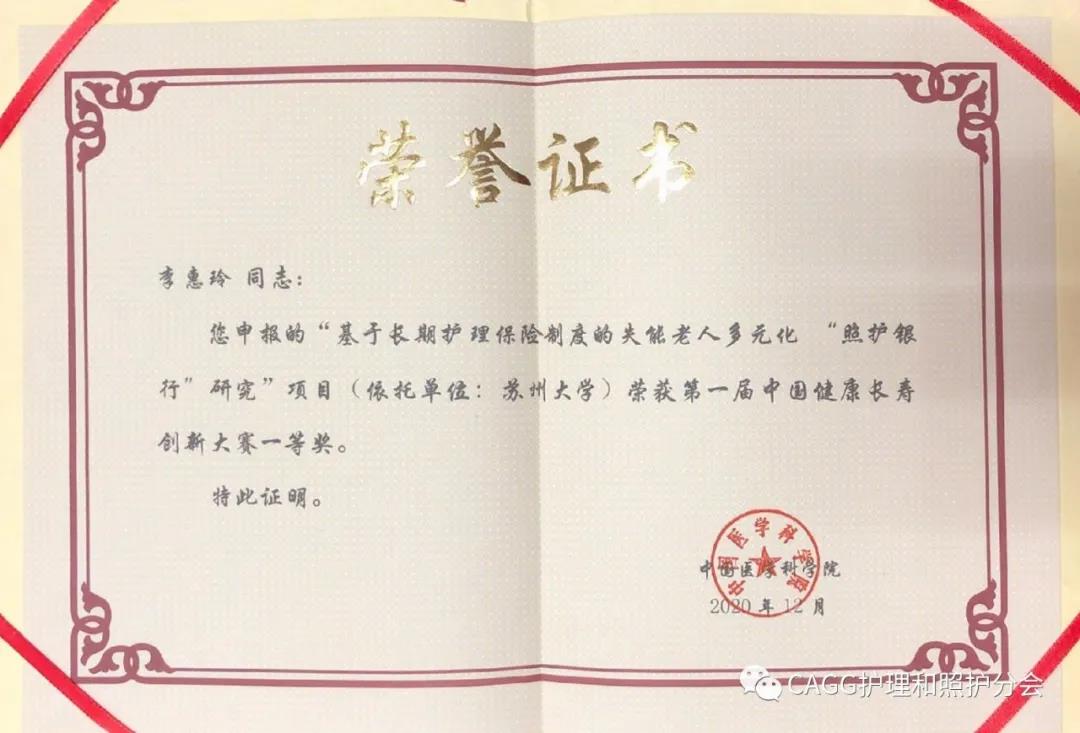 荣誉证书
李惠玲 同志：
您申报的“基于长期护理保险制度的失能老人多元化 “照护银
行”研究”项目（依托单位：苏州大学）荣获第一届中国健康长寿
创新大赛一等奖。
特此证明。
中国医学科学院
中国医学科学院
2020年12月
CAGG护理和照护分会